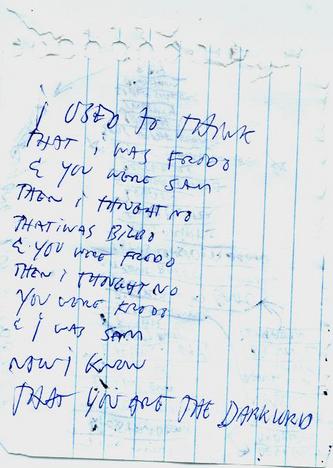 i USED TO THINK
THAT i WAS FRODO
& YOU WERE SAM
THEN i THOUGHT NO
THAT i WAS BILBO
& YOU WERE FRODO
THEN i THOUGHT NO
YOU WERE FRODO
& i WAS SAM
NOW i KNOW
THAT YOU ARE THE DARKLORD